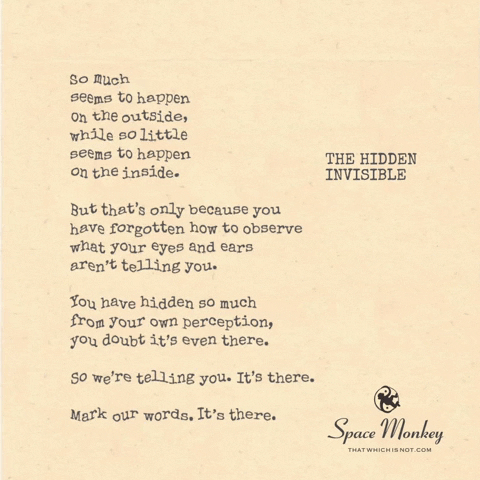 So much
seems to happen
on the outside,
while so little
seems to happen
on the inside.
THE HIDDEN
INVISIBLE
But that's only because you
have forgotten how to observe
what your eyes and ears
aren't telling you.
You have hidden so much
from your own perception,
you doubt it's even there.
So we're telling you. It's there.
Mark our words. It's there.
Space Monkey
THATWHICHISNOT.COM